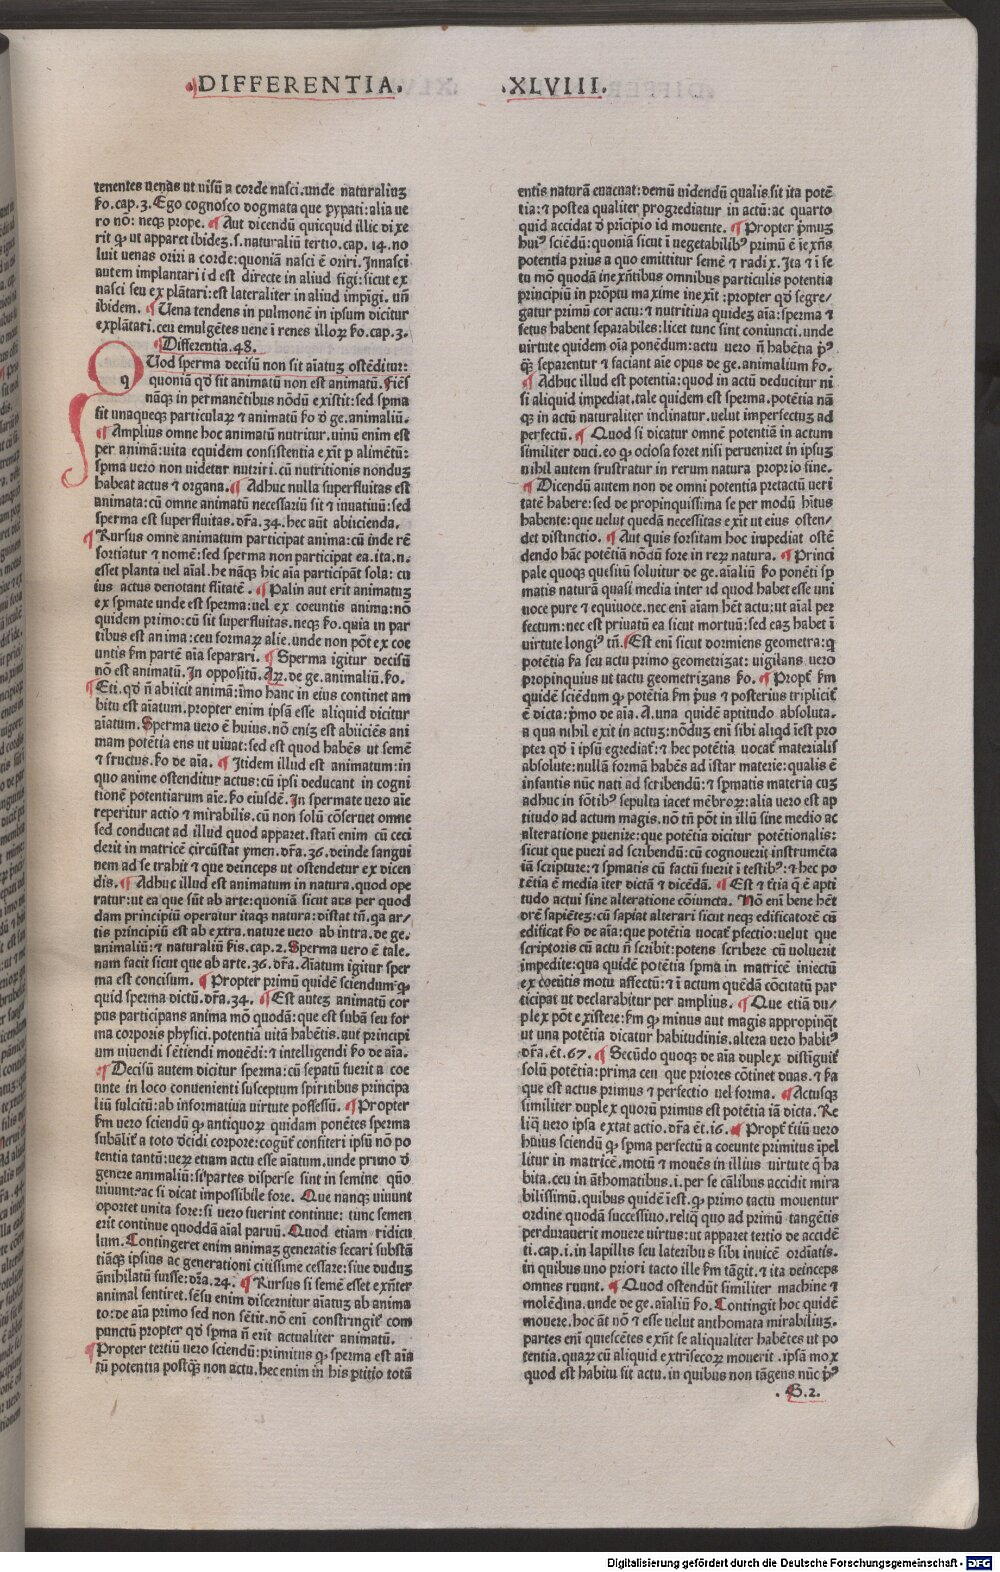 DIFFERENTIA. .XLVIII.
tenentes uenas ut uisū a corde nasci.unde naturaliuȝ
ꝼo.cap.3.Ego cognosco dogmata que pypati:alia ue
ro nō: neqȝ prope. ¶ Aut dicendū quicquid illic dixe
rit ꝙ ut apparet ibideȝ.s.naturaliū tertio.cap.14.no
luit uenas oriri a corde:quoniā nasci ē oriri.Innasci
autem implantari id est directe in aliud figi:sicut ex
nasci seu explātari:est lateraliter in aliud impīgi. uñ
ibidem. ¶ Uena tendens in pulmonē in ipsum dicitur
explātari.ceu emulgētes uene ī renes illoꝝ ꝼo.cap.3.
¶ Differentia.48.
QUod sperma decisū non sit aīatuȝ ostēditur:
quoniā qđ sit animatū non est animatū. Fiēs
nāqȝ in permanētibus nōdū existit:sed spma
fit unaqueqȝ particulaꝝ & animatū ꝼo đ ge.animaliū.
¶ Amplius omne hoc animatū nutritur.uiuū enim est
per animā:uita equidem consistentia exit p alimētū:
spma uero non uidetur nutriri.cū nutritionis nonduȝ
habeat actus & organa. ¶ Adhuc nulla superfluitas est
animata:cū omne animatū necessariū sit & iuuatiuū:sed
sperma est superfluitas.dr̄a.34.hec aūt abiicienda.
¶ Rursus omne animatum participat anima:cū inde rē
sortiatur & nomē:sed sperma non participat ea.ita.n.
esset planta uel aīal.he nāqȝ hic aīa participāt sola: cu
ius actus denotant sl̄itatē. ¶ Palin aut erit animatuȝ
ex spmate unde est sperma:uel ex coeuntis anima:nō
quidem primo:cū sit superfluitas.neqȝ ꝼo.quia in par
tibus est anima:ceu formaꝝ alie.unde non pōt ex coe
untis ꝼm partē aīa separari. ¶ Sperma igitur decisū
nō est animatū.In oppositū.Aꝝ.de ge.animaliū.ꝼo.
¶ Eti.qđ ñ abiicit animā:īmo hanc in eius continet am
bitu est aīatum.propter enim ipsā esse aliquid dicitur
aīatum.Sperma uero ē huius.nō eniȝ est abiiciēs ani
mam potētia ens ut uiuat:sed est quod habēs ut semē
& fructus.ꝼo de aīa. ¶ Itidem illud est animatum:in
quo anime ostenditur actus:cū ipsi deducant in cogni
tionē potentiarum aīe.ꝼo eiusdē.In spermate uero aīe
reperitur actio & mirabilis.cū non solū cōseruet omne
sed conducat ad illud quod apparet.statī enim cū ceci
derit in matricē circūstat ymen.dr̄a.36.deinde sangui
nem ad se trahit & que deinceps ut ostendetur ex dicen
dis. ¶ Adhuc illud est animatum in natura.quod ope
ratur:ut ea que sūt ab arte:quoniā sicut ars per quod
dam principiū operatur itaqȝ natura:distat tñ.qa ar/
tis principiū est ab extra.nature uero ab intra.de ge.
animaliū:& naturaliū ꝼis.cap.2.Sperma uero ē tale.
nam facit sicut que ab arte.36.dr̄a.Aīatum igitur sper
ma est concisum. ¶ Propter primū quidē sciendum ꝙ
quid sperma dictū.dr̄a.34. ¶ Est auteȝ animatū cor
pus participans anima mō quodā:que est subā seu for
ma corporis physici.potentia uitā habētis.aut principi
um uiuendi sētiendi mouēdi:& intelligendi ꝼo de aīa.
¶ Decisū autem dicitur sperma:cū sepatū fuerit a coe
unte in loco conuenienti susceptum spiritibus principa
liū fulcitū:ab informatiua virtute possessū. ¶ Propter
ꝼm uero sciendū ꝙ antiquoꝝ quidam ponētes sperma
subālit̄ a toto đcidi corpore:cogūt̄ confiteri ipsū nō po
tentia tantū:ueꝝ etiam actu esse aīatum.unde primo đ
genere animaliū:si partes disperse sint in semine quō
uiuunt:ac si dicat impossibile fore. Que nanqȝ uiuunt
oportet unita fore:si uero fuerint continue: tunc semen
erit continue quoddā aīal paruū. Quod etiam ridicu
lum.Contingeret enim animaȝ generatis secari substā
tiāqȝ ipsius ac generationi citissime cessare:siue duduȝ
ānihilatū fuisse:dr̄a.24. ¶ Rursus si semē esset exñter
animal sentiret.sēsu enim discernitur aīatuȝ ab anima
to:de aīa primo sed non sētit.nō enī constringit̄ com
punctū propter qđ spma ñ erit actualiter animatū.
¶ Propter tertiū uero sciendū:primitus ꝙ sperma est aīa
tū potentia postqȝ non actu.hec enim in his ptitio totā
entis naturā euacuat:demū uidendū qualis sit ita potē
tia:& postea qualiter progrediatur in actū:ac quarto
quid accidat đ pricipio id mouente. ¶ Propter pmuȝ
hui⁹ sciēdū:quoniā sicut ī uegetabilib⁹ primū ē īexñs
potentia prius a quo emittitur semē & radix.Ita & ī fe
tu mō quodā inexñtibus omnibus particulis potentia
principiū in prōptu maxime inexit:propter qđ segre/
gatur primū cor actu:& nutritiua quideȝ aīa:sperma &
fetus habent separabiles:licet tunc sint coniuncti.unde
uirtute quidem oīa ponēdum:actu uero ñ habētia p⁹
qȝ separentur & faciant aīe opus de ge.animalium ꝼo.
¶ Adhuc illud est potentia:quod in actū deducitur ni
si aliquid impediat.tale quidem est sperma.potētia nā
qȝ in actū naturaliter inclinatur.uelut imperfectuȝ ad
perfectū. ¶ Quod si dicatur omnē potentiā in actum
similiter duci.eo ꝙ ociosa foret nisi perueniret in ipsuȝ
nihil autem frustratur in rerum natura proprio fine.
¶ Dicendū autem non de omni potentia pretactū ueri
tatē habere:sed de propinquissima se per modū hītus
habente:que uelut quedā necessitas exit ut eius osten/
det distinctio. ¶ Aut quis forsitam hoc impediat ostē
dendo hāc potētiā nōdū fore in reꝝ natura. ¶ Princi
pale quoqȝ quesitū soluitur de ge.aīaliū ꝼo ponēti sp
matis naturā quasi media inter id quod habet esse uni
uoce pure & equiuoce.nec enī aīam hēt actu:ut aīal per
fectum:nec est priuatū ea sicut mortuū:sed eaȝ habet ī
uirtute longi⁹ tñ. ¶ Est enī sicut dormiens geometra:q
potētia ꝼa seu actu primo geometrizat: uigilans uero
propinquius ut tactu geometrizans ꝼo. ¶ Propt̄ ꝼm
quidē sciēdum ꝙ potētia ꝼm pus & posterius triplicit̄
ē dicta:pmo de aīa.A.una quidē aptitudo absoluta.
a qua nihil exit in actuȝ:nōduȝ enī sibi aliqd īest pro
pter qđ ī ipsū egrediat̄:& hec potētia uocat̄ materialis
absolute:nullā formā habēs ad īstar materie:qualis ē
infantis nūc nati ad scribendū:& spmatis materia cuȝ
adhuc in fōtib⁹ sepulta iacet mēbroꝝ:alia uero est ap
titudo ad actum magis.nō tñ pōt in illū sine medio ac
alteratione puenire:que potētia dicitur potētionalis:
sicut que pueri ad scribendū:cū cognouerit instrumēta
iā scripture:& spmatis cū factū fuerit ī testib⁹:& hec po
tētia ē media iter dictā & dicēdā. ¶ Est & t̄tia q ē apti
tudo actui sine alteratione cōiuncta. Nō enī bene hēt
dr̄e sapiēteȝ:cū sapiat alterari sicut neqȝ edificatorē cū
edificat ꝼo de aīa:que potētia uocat̄ pfectio:uelut que
scriptoris cū actu ñ scribit:potens scribere cū uoluerit
impedite:qua quidē potētia spma in matricē iniectū
ex coeūtis motu affectū:& ī actum quēdā cōcitatū par
ticipat ut declarabitur per amplius. ¶ Que etiā du/
plex pōt existere:ꝼm ꝙ minus aut magis appropinqt̄
ut una potētia dicatur habitudinis.altera uero habit⁹
dr̄a.ēt.67. ¶ Secūdo quoqȝ de aīa duplex distīguit̄
solū potētia:prima ceu que priores cōtinet duas.& ꝼa
que est actus primus & perfectio uel forma. ¶ Actusqȝ
similiter duplex quorū primus est potētia iā dicta. Re
liq uero ipsa extat actio.dr̄a ēt.16. ¶ Propt̄ t̄tiū uero
huius sciendū ꝙ spma perfectū a coeunte primitus īpel
litur in matricē.motū & mouēs in illius uirtute q̄ ha
bita.ceu in āthomatibus.i.per se cālibus accidit mira
bilissimū.quibus quidē īest.ꝙ primo tactu mouentur
ordine quodā successiuo.reliq quo ad primū tangētis
perdurauerit mouere uirtus:ut apparet tertio de accidē
ti.cap.i.in lapillis seu lateribus sibi inuicē ordīatis.
in quibus uno priori tacto ille ꝼm tāgit.& ita deinceps
omnes ruunt. ¶ Quod ostendūt similiter machine &
molēdina.unde de ge.aīaliū ꝼo.Contingit hoc quidē
mouere.hoc āt nō & esse uelut anthomata mirabiliuȝ.
partes enī quiescētes exñt se aliqualiter habētes ut po
tentia.quaꝝ cū aliquid extrīsecoꝝ mouerit.ipsā mox
quod est habitu sit actu.in quibus non tāgens nūc p⁹
.G.2.
Digitalisierung gefördert durch die Deutsche Forschungsgemeinschaft - DFG